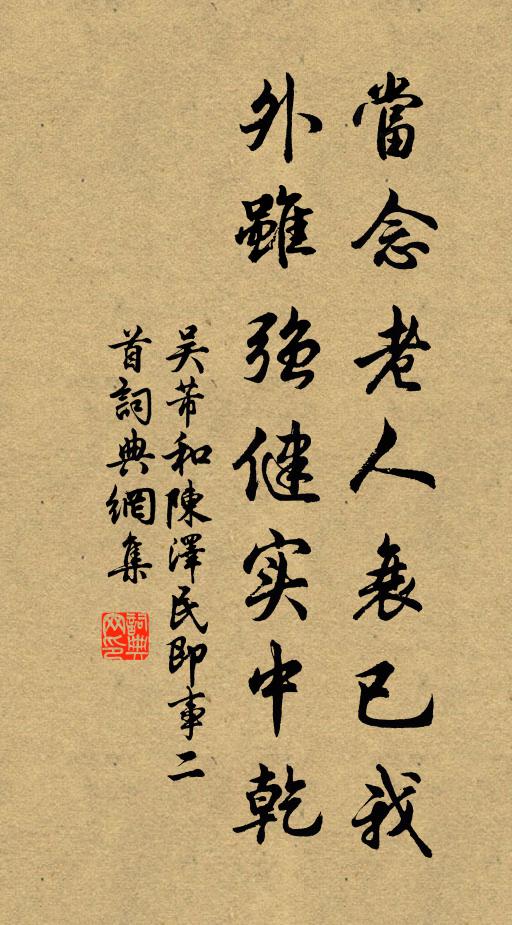 當念老人衰已我
外雖強健实中乾
吴芾和陳澤民即事二
首詞典網集
詞典網印